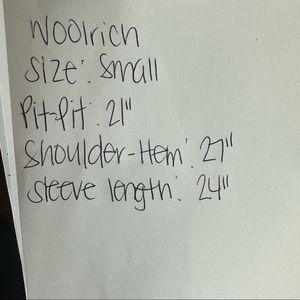 Woolrich
Size: Small
Pit-Pit: 21"
Shoulder-Hem: 27"
Sleeve length: 24"